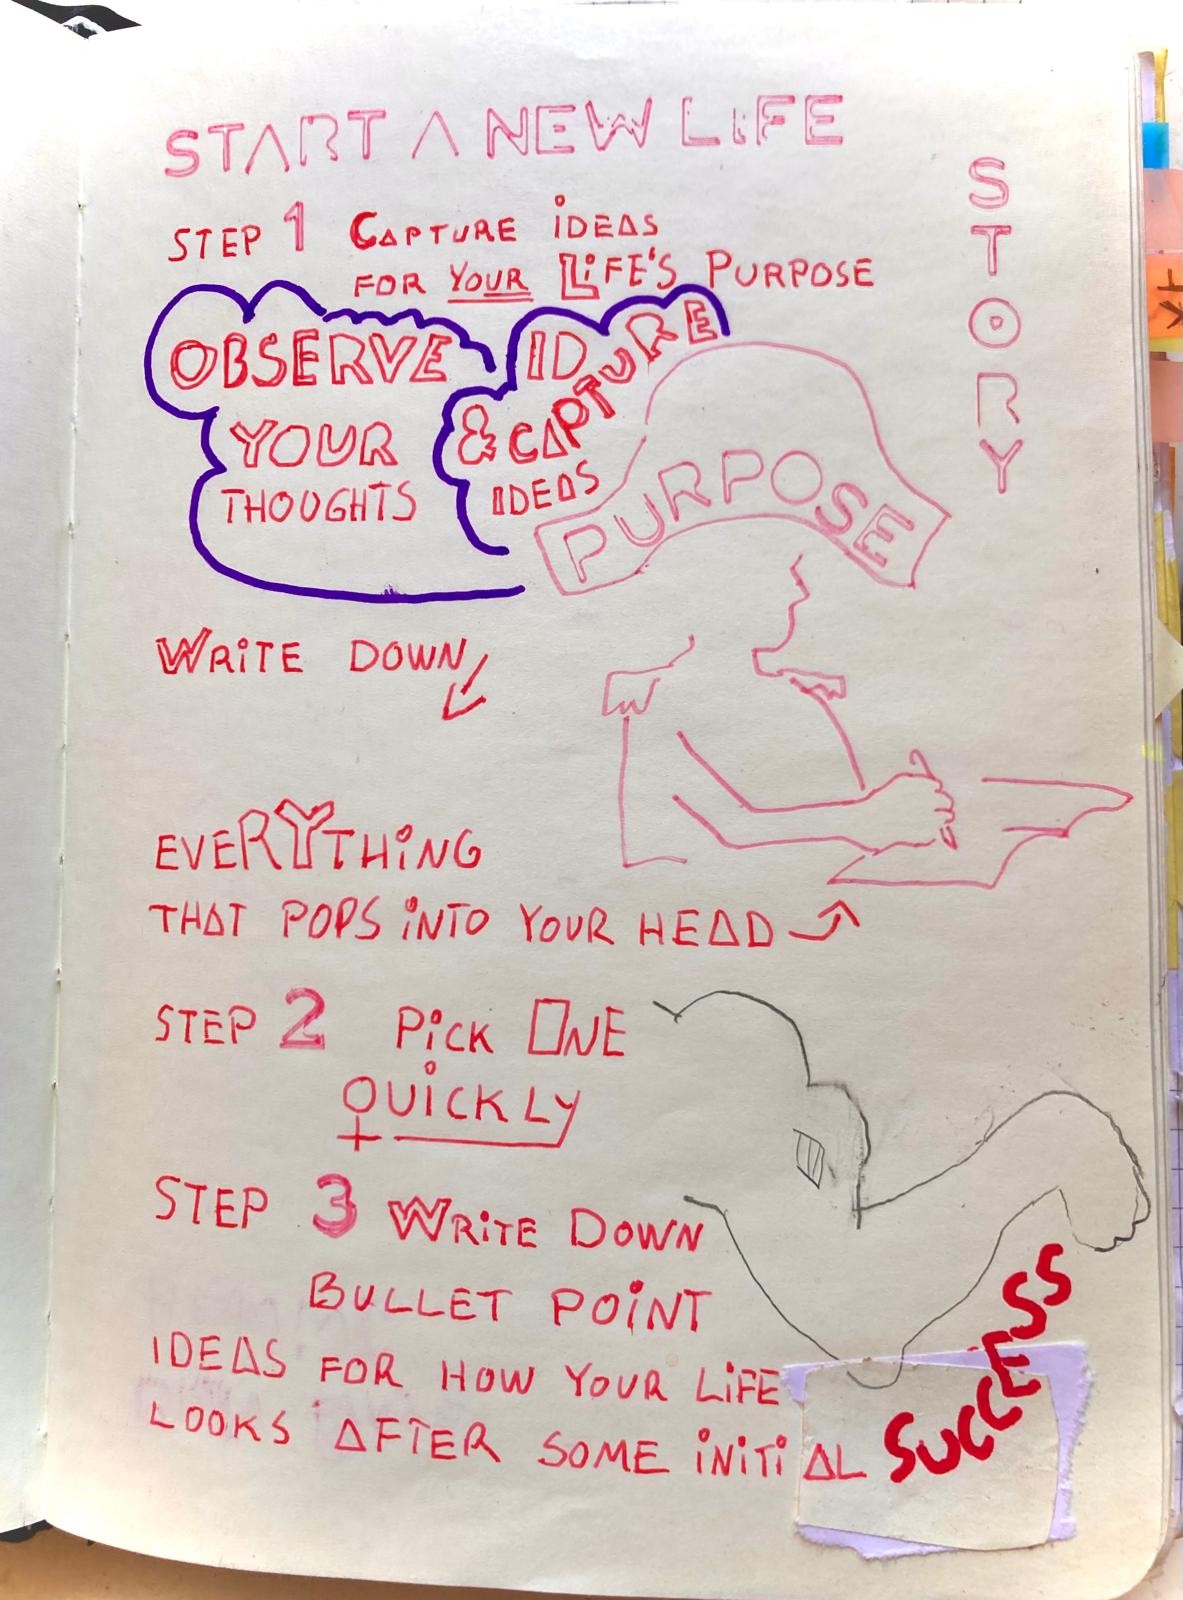 START A NEW LiFE
STORY
STEP 1 CAPTURE iDEAS
FOR YOUR LiFE'S PURPOSE
OBSERVE
YOUR
THOUGHTS
ID
& CAPTURE
IDEAS
PURPOSE
WRiTE DOWN
EVERYTHiNG
THAT POPS iNTO YOUR HEAD
STEP 2 PiCK ONE
QUiCKLY
STEP 3 WRiTE DOWN
BULLET POiNT
IDEAS FOR HOW YOUR LiFE
LOOKS AFTER SOME iNiTiAL SUCCESS